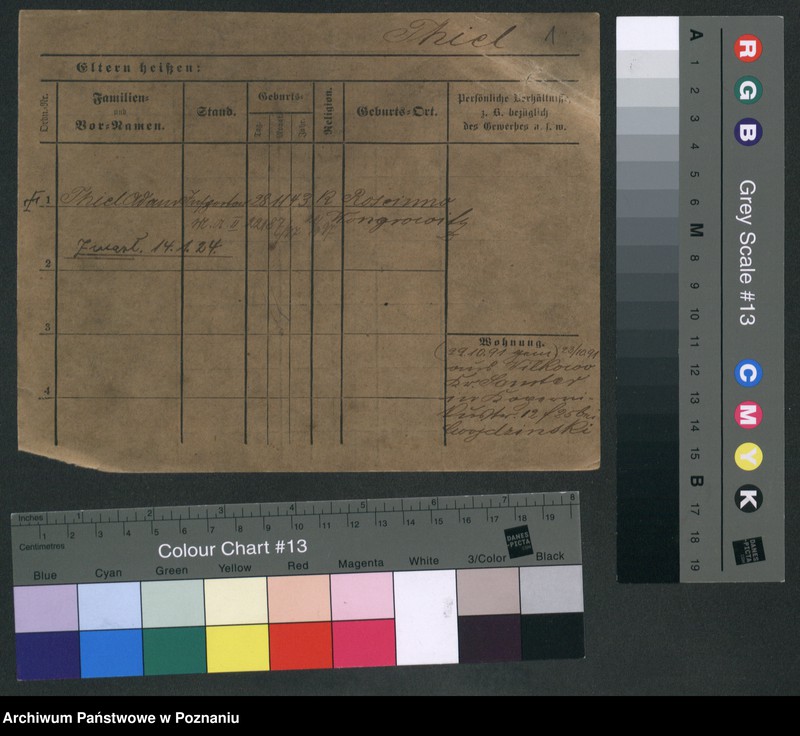 Thiel 1
Eltern heißen:
Ordn.-Nr.
Familien-
und
Vor-Namen.
Stand.
Geburts-
Tag.
Monat
Jahr.
Religion.
Geburts-Ort.
Persönliche Verhältnisse,
z. B. bezüglich
des Gewerbes u. s. w.
1 Thiel 28 11 43 K
Wongrowitz
14. 1. 24.
2
3
Wohnung.
(29.10.91 23/10.91
aus Wilkowo
Kr. Samter
in
12 / 25 bei
Wojdzinski
4
Inches 1 2 3 4 5 6 7 8
Centimetres 1 2 3 4 5 6 7 8 9 10 11 12 13 14 15 16 17 18 19
Colour Chart #13
DANES
-PICTA
.COM
Blue Cyan Green Yellow Red Magenta White 3/Color Black
A 1 2 3 4 5 6 M 8 9 10 11 12 13 14 15 B 17 18 19
R G B
Grey Scale #13
C M Y K
DANES
-PICTA
.COM
Archiwum Państwowe w Poznaniu